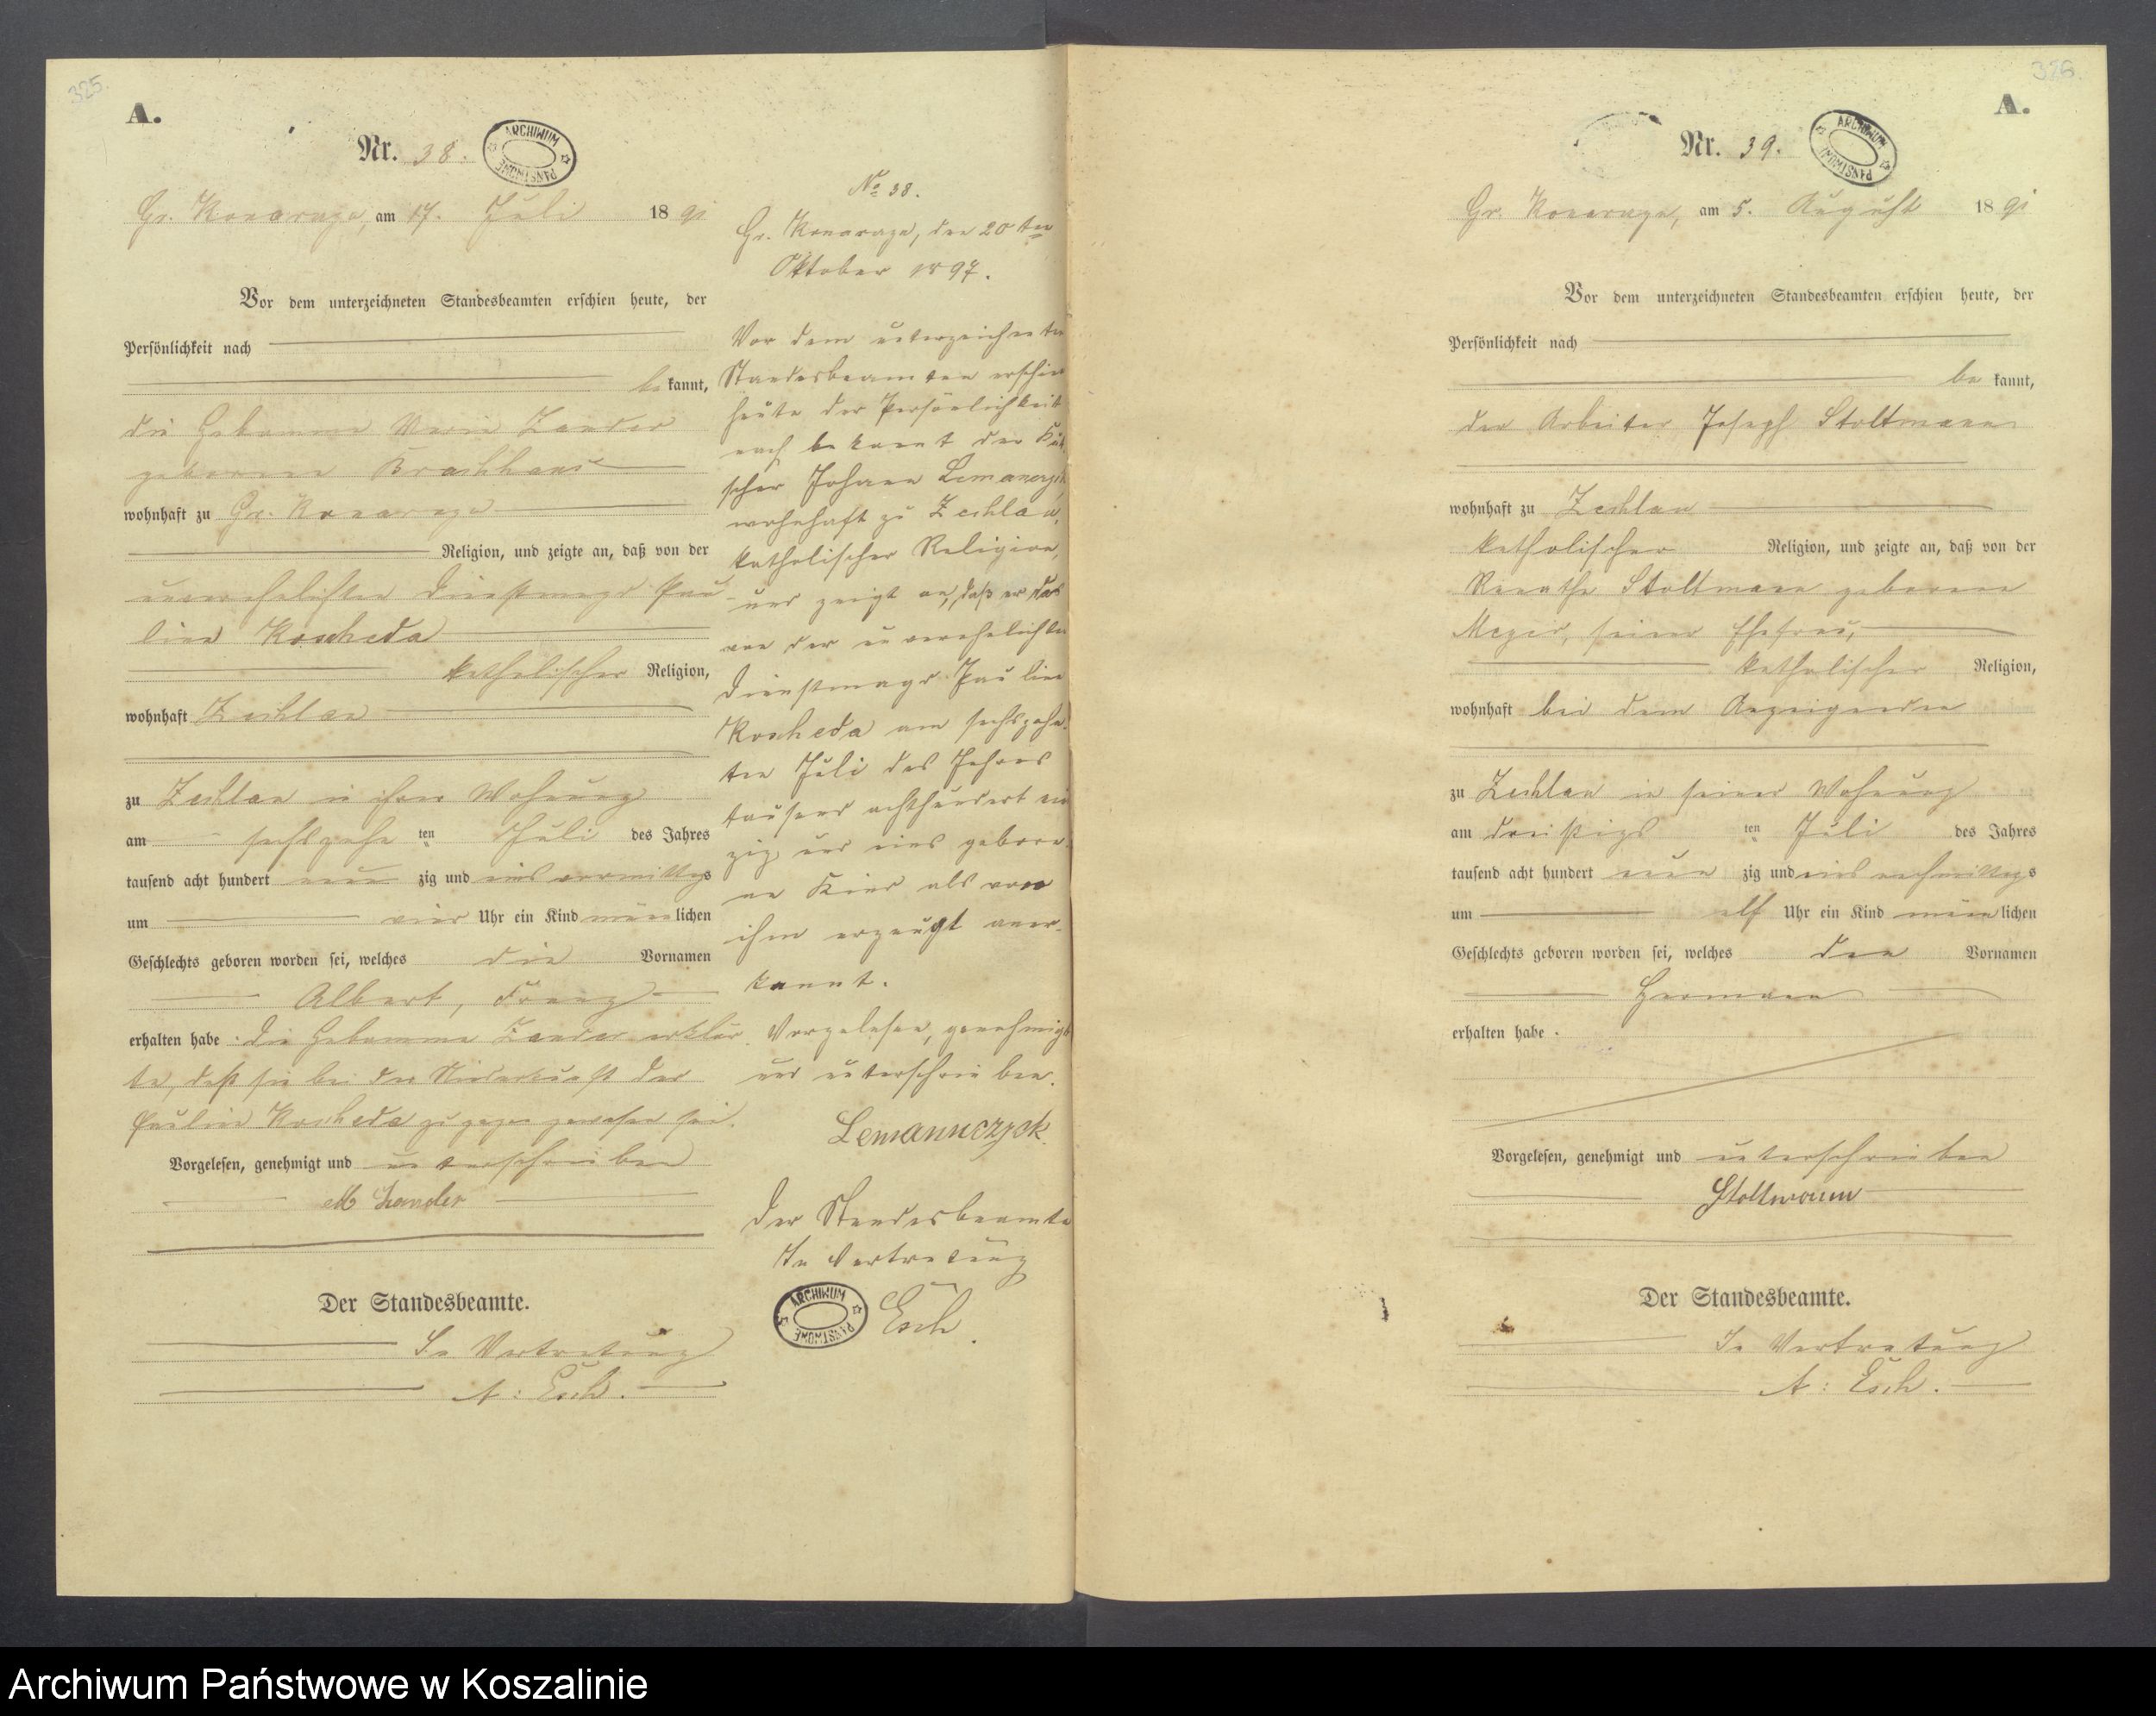 325.
A.
Nr. 38.
ARCHIWUM PAŃSTWOWE
Gr. Konarczyn, am 17. Juli 1891
Vor dem unterzeichneten Standesbeamten erschien heute, der
Persönlichkeit nach
be kannt,
die Hebamme Marie Zander
geborene
wohnhaft zu Gr. Konarczyn
Religion, und zeigte an, daß von der
unverehelichten Dienstmagd Pau-
line Koscheda
katholischer Religion,
wohnhaft Zechlau
zu Zechlau in ihrer Wohnung
am sechszehn ten Juli des Jahres
tausend acht hundert neun zig und eins vormittags
um vier Uhr ein Kind männlichen
Geschlechts geboren worden sei, welches die Vornamen
Albert, Franz
erhalten habe. Die Hebamme Zander erklär-
te, daß sie bei der Niederkunft der
Pauline Koscheda zugegen gewesen sei.
Vorgelesen, genehmigt und unterschrieben
M Zander
Der Standesbeamte.
In Vertretung
A: Esch.
No 38.
Gr. Konarczyn, den 20ten
Oktober 1897.
Vor dem unterzeichneten
Standesbeamten erschien
heute der Persönlichkeit
nach bekannt der Kut-
scher Johann Lemanczyk,
wohnhaft zu Zechlau,
katholischer Religion,
und zeigt an, daß er das
von der unverehelichten
Dienstmagd Pauline
Koscheda am sechszehn-
ten Juli des Jahres
tausend achthundert neun
zig und eins gebore-
ne Kind als von
ihm erzeugt aner-
kannt.
Vorgelesen, genehmigt
und unterschrieben.
Lemannczyck.
Der Standesbeamte
In Vertretung
Esch.
ARCHIWUM PAŃSTWOWE
326.
A.
Nr. 39.
ARCHIWUM PAŃSTWOWE
Gr. Konarczyn, am 5. August 1891
Vor dem unterzeichneten Standesbeamten erschien heute, der
Persönlichkeit nach
be kannt,
der Arbeiter Joseph Stoltmann
wohnhaft zu Zechlau
katholischer Religion, und zeigte an, daß von der
Renathe Stoltmann geborene
seiner Ehefrau,
katholischer Religion,
wohnhaft bei dem Anzeigenden
zu Zechlau in seiner Wohnung
am dreißigs ten Juli des Jahres
tausend acht hundert neun zig und eins nachmittags
um elf Uhr ein Kind männlichen
Geschlechts geboren worden sei, welches den Vornamen
Hermann
erhalten habe.
Vorgelesen, genehmigt und unterschrieben
Stoltmann
Der Standesbeamte.
In Vertretung
A: Esch.
Archiwum Państwowe w Koszalinie